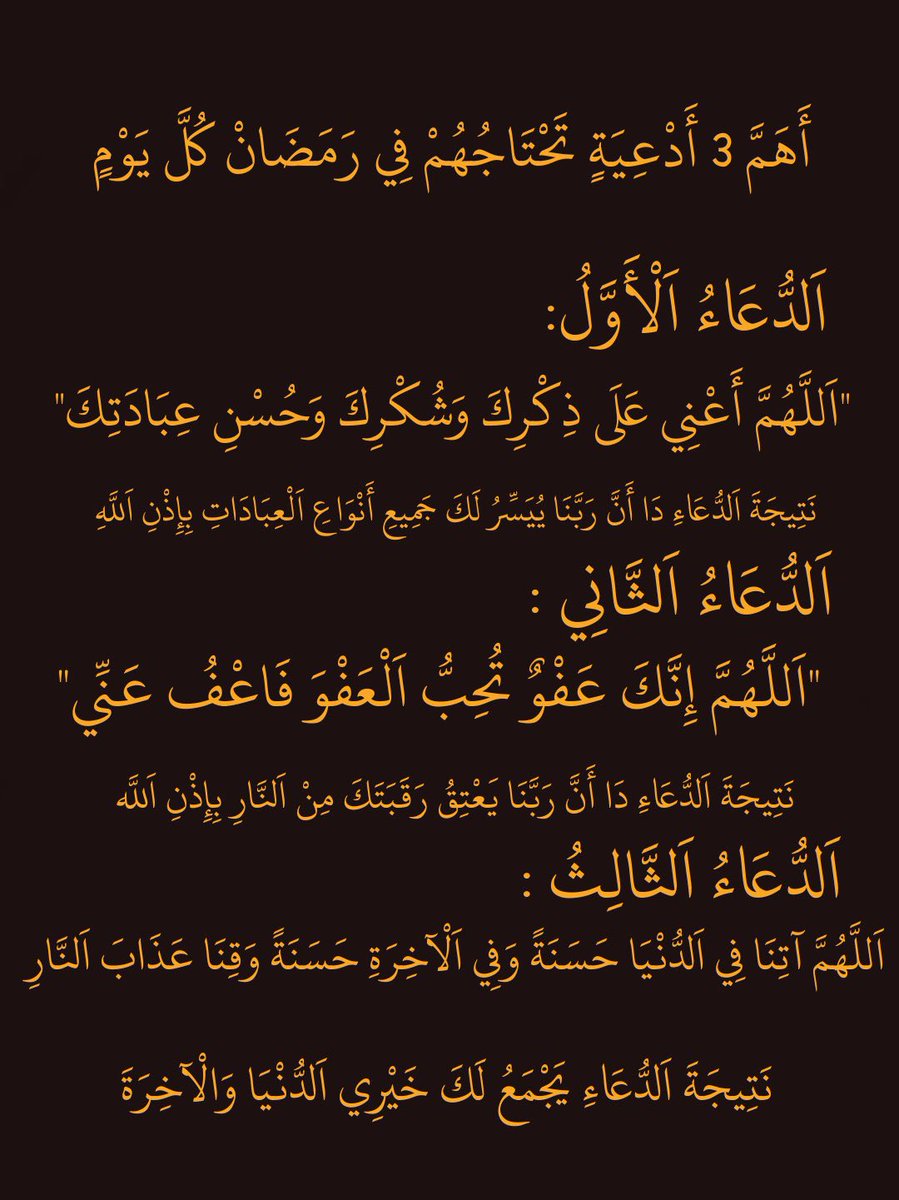 أَهَمَّ 3 أَدْعِيَةٍ تَحْتَاجُهُمْ فِي رَمَضَانْ كُلَّ يَوْمٍ
اَلدُّعَاءُ اَلْأَوَّلُ:
"اَللَّهُمَّ أَعْنِي عَلَى ذِكْرِكَ وَشُكْرِكَ وَحُسْنِ عِبَادَتِكَ"
نَتِيجَةَ اَلدُّعَاءِ دَا أَنَّ رَبَّنَا يُيَسِّرُ لَكَ جَمِيعِ أَنْوَاعِ اَلْعِبَادَاتِ بِإِذْنِ اَللَّهِ
اَلدُّعَاءُ اَلثَّانِي :
"اَللَّهُمَّ إِنَّكَ عَفْوٌ تُحِبُّ اَلْعَفْوَ فَاعْفُ عَنِّي"
نَتِيجَةَ اَلدُّعَاءِ دَا أَنَّ رَبَّنَا يَعْتِقُ رَقَبَتَكَ مِنْ اَلنَّارِ بِإِذْنِ اَللَّه
اَلدُّعَاءُ اَلثَّالِثُ :
اَللَّهُمَّ آتِنَا فِي اَلدُّنْيَا حَسَنَةً وَفِي اَلْآخِرَةِ حَسَنَةً وَقِنَا عَذَابَ اَلنَّارِ
نَتِيجَةَ اَلدُّعَاءِ يَجْمَعُ لَكَ خَيْرِي اَلدُّنْيَا وَالْآخِرَةَ